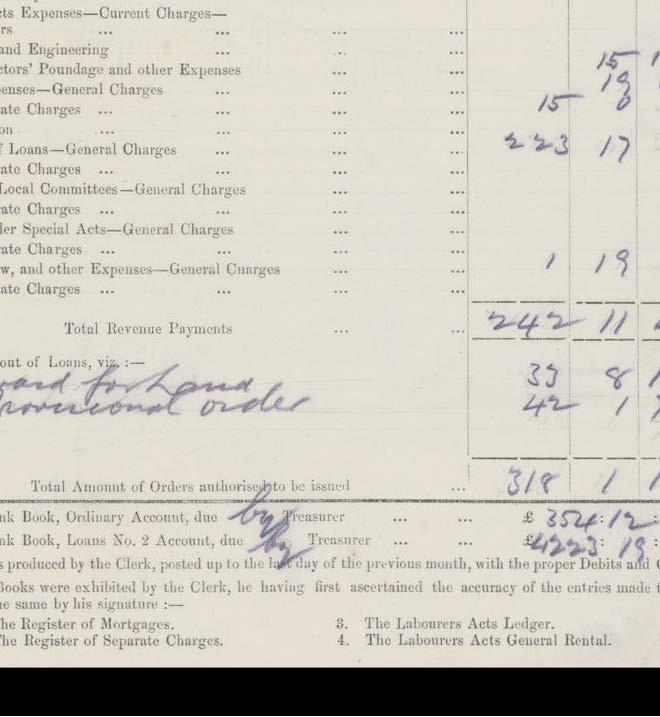 cts Expenses—Current Charges—
rs ... ... ...
and Engineering ... ... ... 15 1
ctors' Poundage and other Expenses ... ... 19
penses—General Charges ... ... ... 15 0
ate Charges ... ... ... ...
on ... ... ... ...
f Loans—General Charges ... ... ... 223 17
ate Charges ... ... ... ...
Local Committees—General Charges ... ...
ate Charges ... ... ... ...
der Special Acts—General Charges ... ...
ate Charges ... ... ... ...
w, and other Expenses—General Charges ... ... 1 19
ate Charges ... ... ... ...
Total Revenue Payments ... ... 242 11
out of Loans, viz. :—
ward for Land 33 8 1
rovisional order 42 1
Total Amount of Orders authorised to be issued ... 318 1 1
nk Book, Ordinary Account, due by Treasurer ... ... £ 354:12:
nk Book, Loans No. 2 Account, due by Treasurer ... ... £4223:19:
s produced by the Clerk, posted up to the last day of the previous month, with the proper Debits and C
Books were exhibited by the Clerk, he having first ascertained the accuracy of the entries made t
he same by his signature :—
he Register of Mortgages. 3. The Labourers Acts Ledger.
he Register of Separate Charges. 4. The Labourers Acts General Rental.